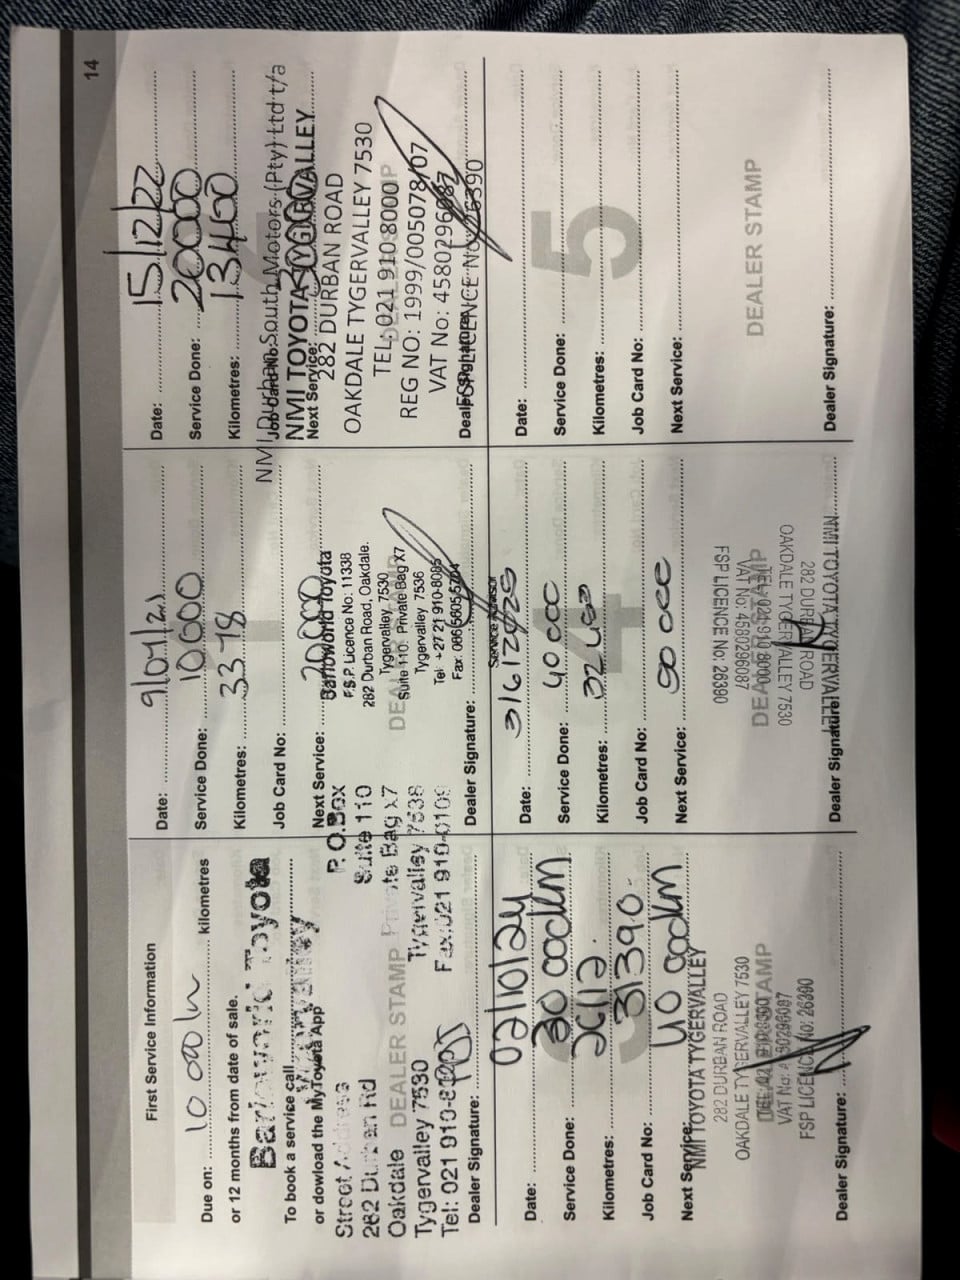 14
First Service Information
Due on: 10 000 km kilometres
or 12 months from date of sale.
To book a service call
or dowload the MyToyota App
Barloworld Toyota
Street Address
282 Durban Rd
Oakdale
Tygervalley 7530
Tel: 021 910-8
P.O.Box
Suite 110
Private Bag X7
Tygervalley 7536
Fax:021 910-0109
DEALER STAMP
Dealer Signature:
Date: 9/04/21
Service Done: 10000
Kilometres: 3378
Job Card No:
Next Service: 20000
Barloworld Toyota
F.S.P. Licence No: 11338
282 Durban Road, Oakdale.
Tygervalley 7530
Suite 110. Private Bag X7
Tygervalley 7536
Tel: +27 21 910-8085
Fax: 086
Service Advisor
Dealer Signature:
Date: 15/12/22
Service Done: 20000
Kilometres: 13400
Job Card No:
Next Service: 30000
NMI Durban South Motors (Pty) Ltd t/a
NMI TOYOTA TYGERVALLEY
282 DURBAN ROAD
OAKDALE TYGERVALLEY 7530
TEL: 021 910 8000
REG NO: 1999/005078/07
VAT No: 4580296087
FSP LICENCE No: 26390
Dealer Signature:
Date: 02/10/24
Service Done: 30 000km
Kilometres: 26112.
Job Card No: 31390.
Next Service: 40 000km
NMI TOYOTA TYGERVALLEY
282 DURBAN ROAD
OAKDALE TYGERVALLEY 7530
DEALER STAMP
VAT No: 4580296087
FSP LICENCE No: 26390
Dealer Signature:
4
Date: 3/6/2025
Service Done: 40 000
Kilometres:
Job Card No:
Next Service: 50 000
NMI TOYOTA TYGERVALLEY
282 DURBAN ROAD
OAKDALE TYGERVALLEY 7530
DEALER STAMP
TEL: 021 910 8000
VAT No: 4580296087
FSP LICENCE No: 26390
Dealer Signature:
5
Date:
Service Done:
Kilometres:
Job Card No:
Next Service:
DEALER STAMP
Dealer Signature: